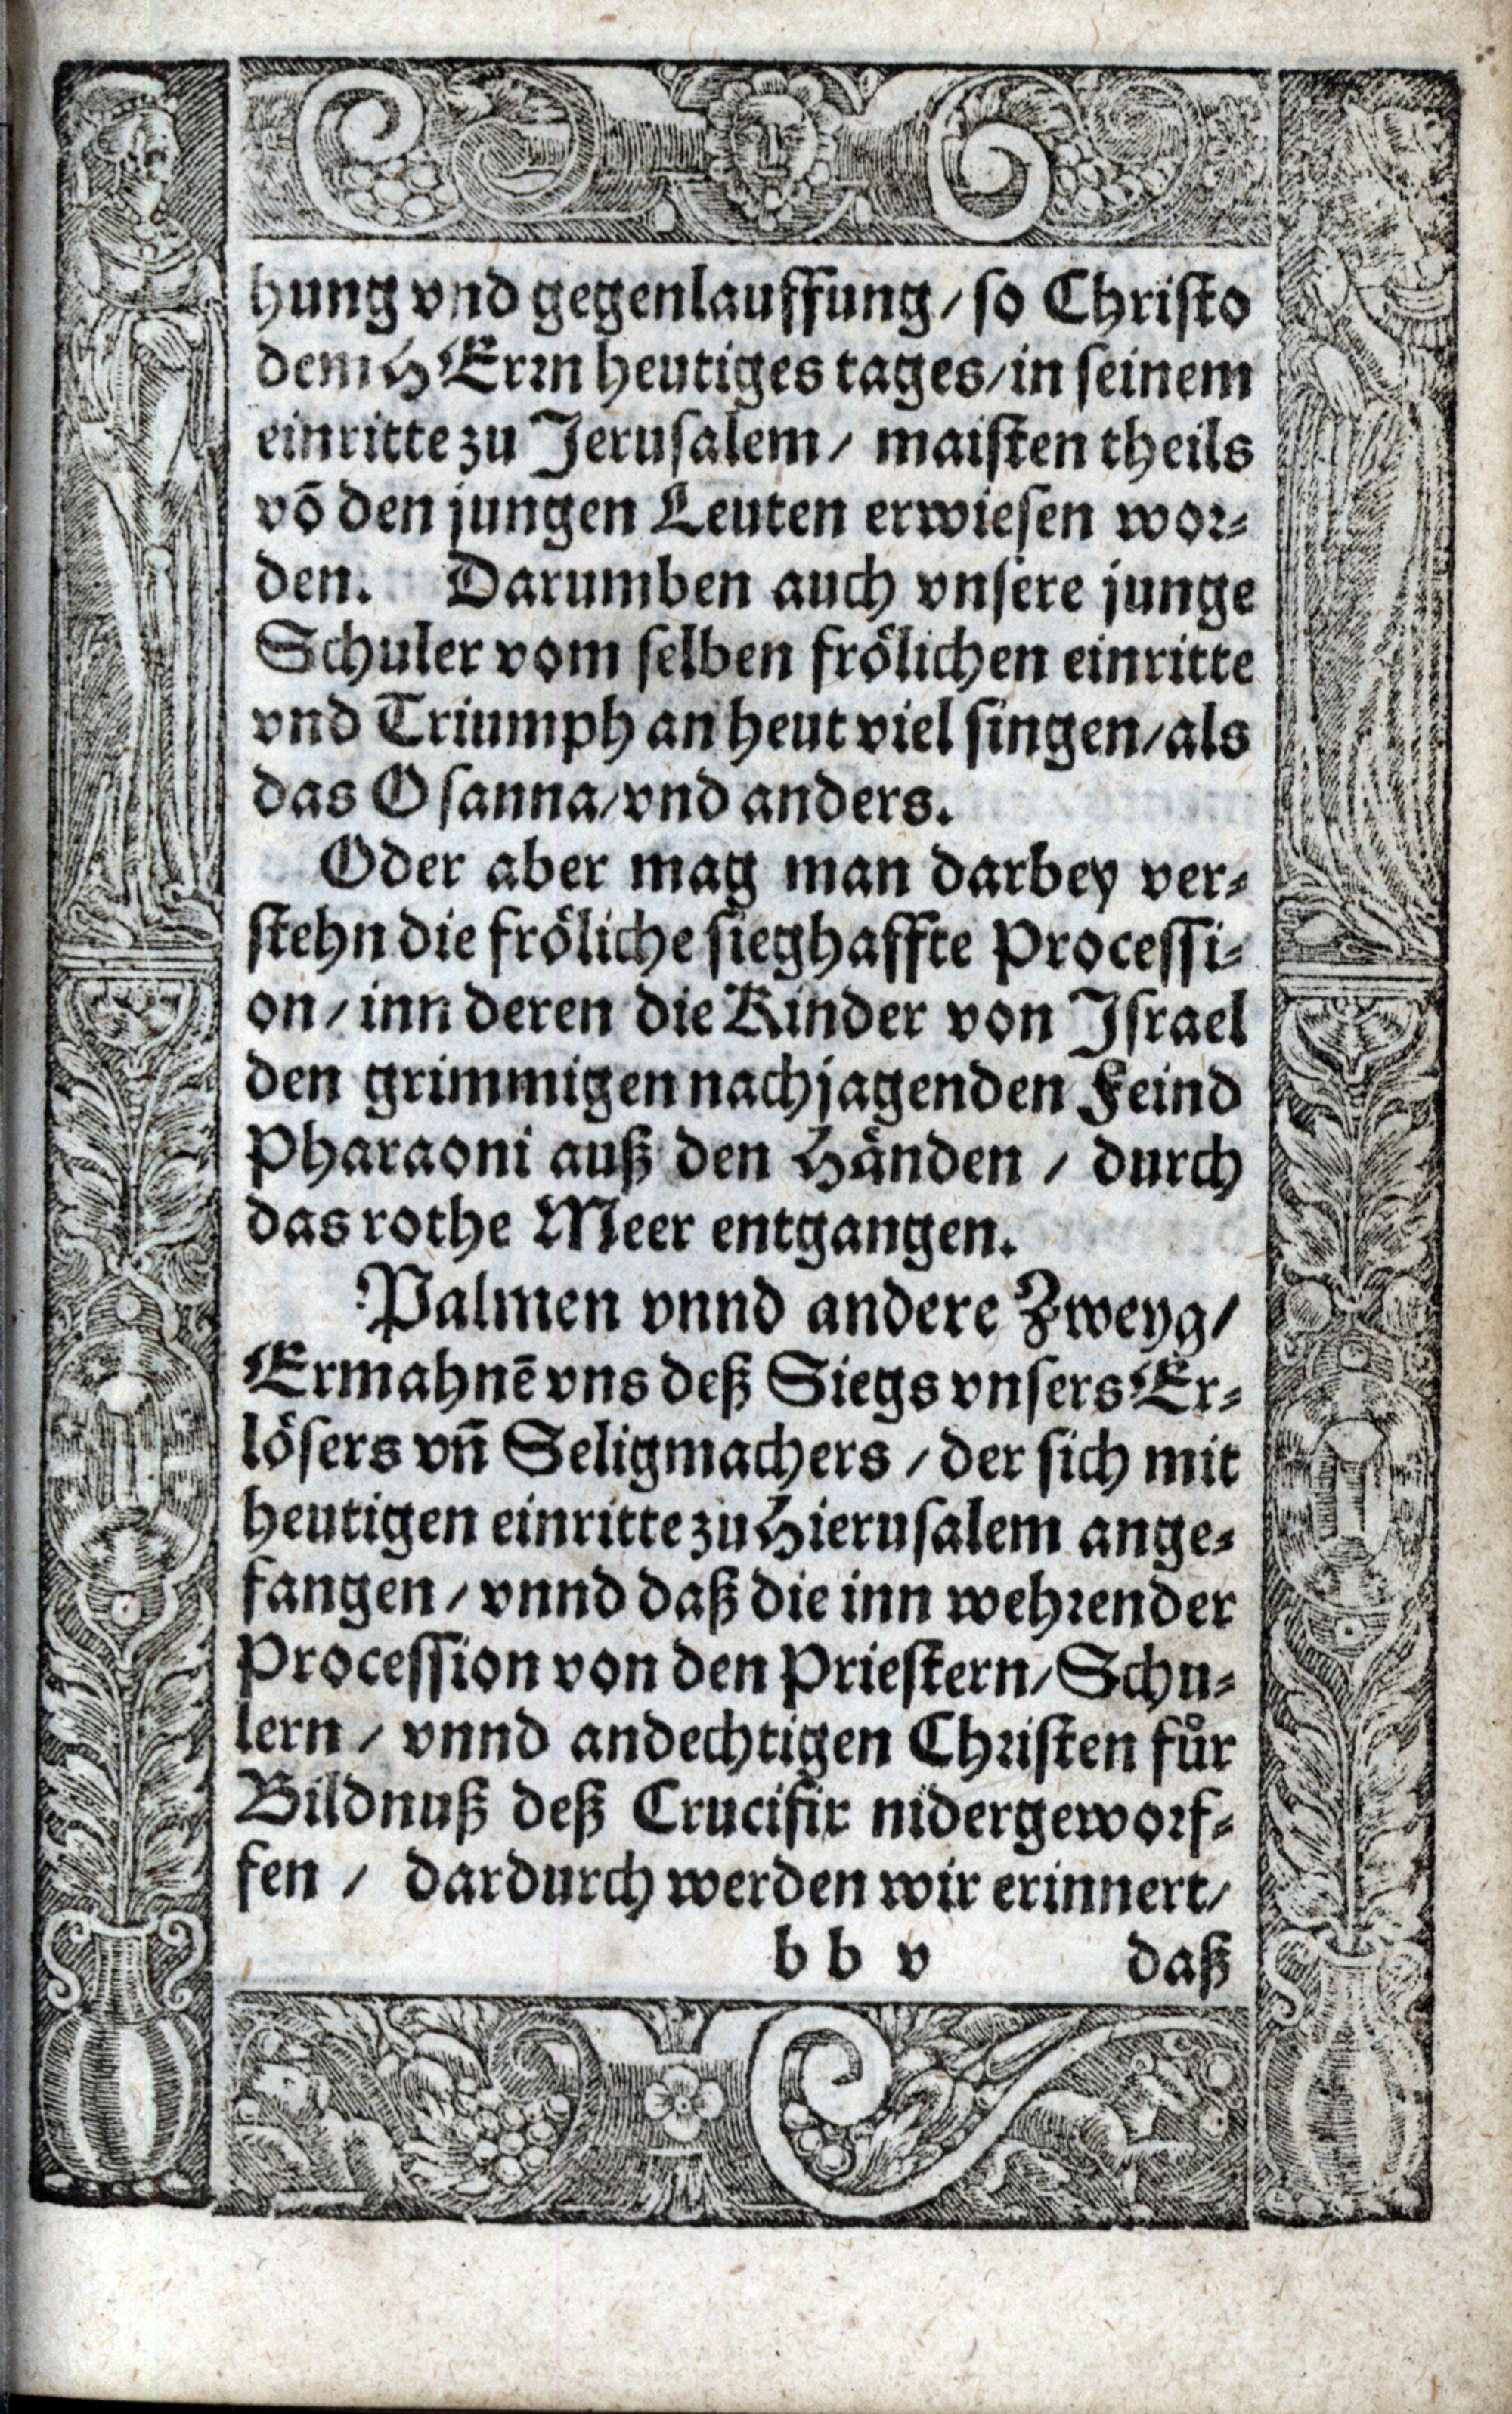 hung vnd gegenlauffung / so Christo
dem HErrn heutiges tages / in seinem
einritte zu Jerusalem / maisten theils
võ den jungen Leuten erwiesen wor-
den. Darumben auch vnsere junge
Schuler vom selben frölichen einritte
vnd Triumph an heut viel singen / als
das Osanna / vnd anders.
Oder aber mag man darbey ver-
stehn die fröliche sieghaffte Processi-
on / inn deren die Kinder von Israel
den grimmigen nachjagenden Feind
Pharaoni auß den Händen / durch
das rothe Meer entgangen.
Palmen vnnd andere Zweyg /
Ermahnẽ vns deß Siegs vnsers Er-
lösers vñ Seligmachers / der sich mit
heutigen einritte zu Hierusalem ange-
fangen / vnnd daß die inn wehrender
Procession von den Priestern / Schu-
lern / vnnd andechtigen Christen fůr
Bildnuß deß Crucifix nidergeworf-
fen / dardurch werden wir erinnert /
b b v daß